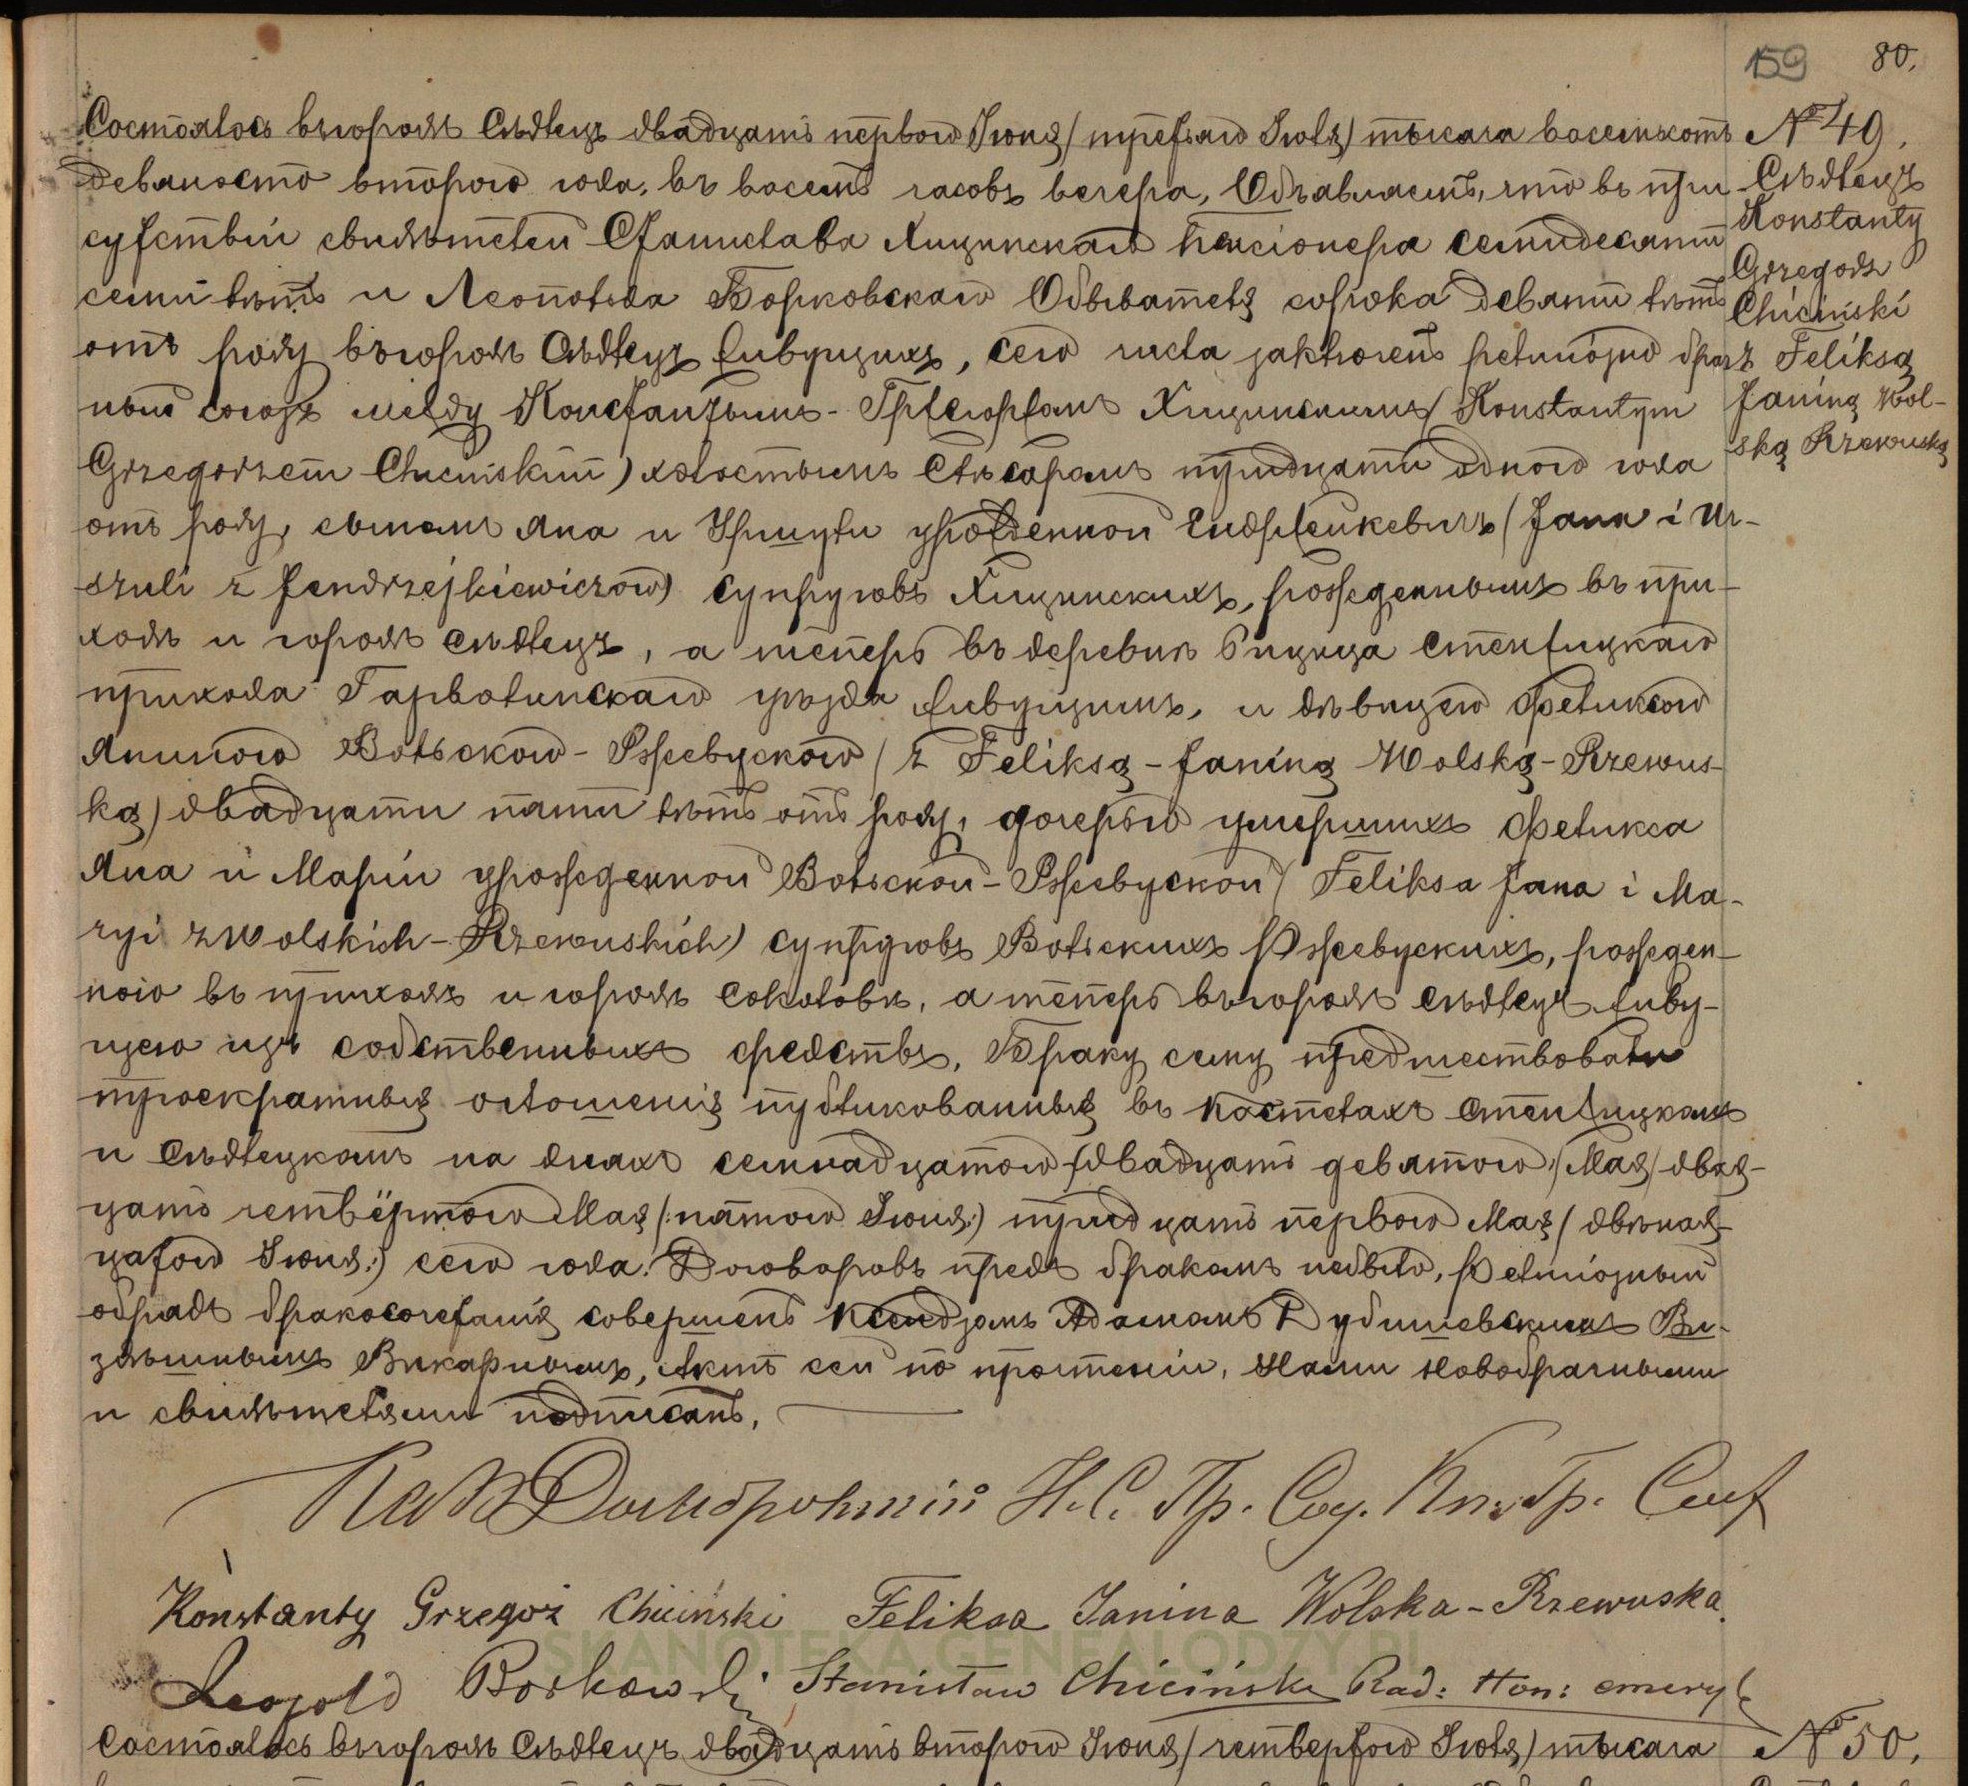 159 80.
Состоялось въ городѣ Сѣдлецъ двадцать перваго Іюня / третьяго Іюля / тысяча восемьсотъ
девяносто второго года, въ восемь часовъ вечера, Объявляемъ, что въ при
сутствіи свидѣтелей Станислава Хицинскаго пенсіонера семидесяти
семи лѣтъ и Леопольда Борковскаго Обывателя сорока девяти лѣтъ
отъ роду въ городѣ Сѣдлецъ живущихъ, сего числа заключенъ религіозно брач
ный союзъ между Константымъ-Гржегоржемъ Хицинскимъ / Konstantym
Grzegorzem Chicińskim) холостымъ Слѣсаремъ тридцати одного года
отъ роду, сыномъ Яна и Уршули урожденной Ендржейкевичъ (Jana i Ur-
szuli z Jendrzejkiewiczów) супруговъ Хицинскихъ, рожденнымъ въ при-
ходѣ и городѣ Сѣдлецъ, а теперь въ деревнѣ стенжицкаго
прихода Гарволинскаго уѣзда живущимъ, и дѣвицею Феликсою
Яниною Вольскою-Ржевускою / z Feliksą-Janiną Wolską-Rzewus-
ką) двадцати пяти лѣтъ отъ роду, дочерью умершихъ Феликса
Яна и Маріи урожденной Вольской-Ржевуской / Feliksa Jana i Ma-
ryi z Wolskich-Rzewuskich) супруговъ Вольскихъ Ржевускихъ, рожден-
ною въ приходѣ и городѣ Соколовѣ, а теперь въ городѣ Сѣдлецъ живу-
щею изъ собственныхъ средствъ, Браку сему предшествовали
троекратныя оглошенія публикованныя въ костелахъ Стенжицкомъ
и Сѣдлецкомъ на дняхъ семнадцатого / двадцать девятого / Мая / двад-
цать четвёртого Мая (: пятого Іюня:) тридцать первого Мая / двѣнад-
цатого Іюня:) сего года. Договоровъ предъ бракомъ небыло, Религіозный
обрядъ бракосочетанія совершенъ Ксендзомъ Адамомъ
здѣшнымъ Викарнымъ, Актъ сей по прочтеніи, Нами Новобрачными
и свидѣтелями подписанъ.
Н. С. Пр.
Konstanty Grzegoż Chiciński Feliksa Janina Wolska-Rzewuska
Leopold Borkowski Stanisław Chiciński Rad: Hon: emeryt
Состоялось въ городѣ Сѣдлецъ двадцать второго Іюня / четвертого Іюля / тысяча
№ 49.
Сѣдлецъ
Konstanty
Grzegorz
Chiciński
z Feliksą
Janiną Wol-
ską Rzewuską
№ 50.
SKANOTEKA.GENEALODZY.PL